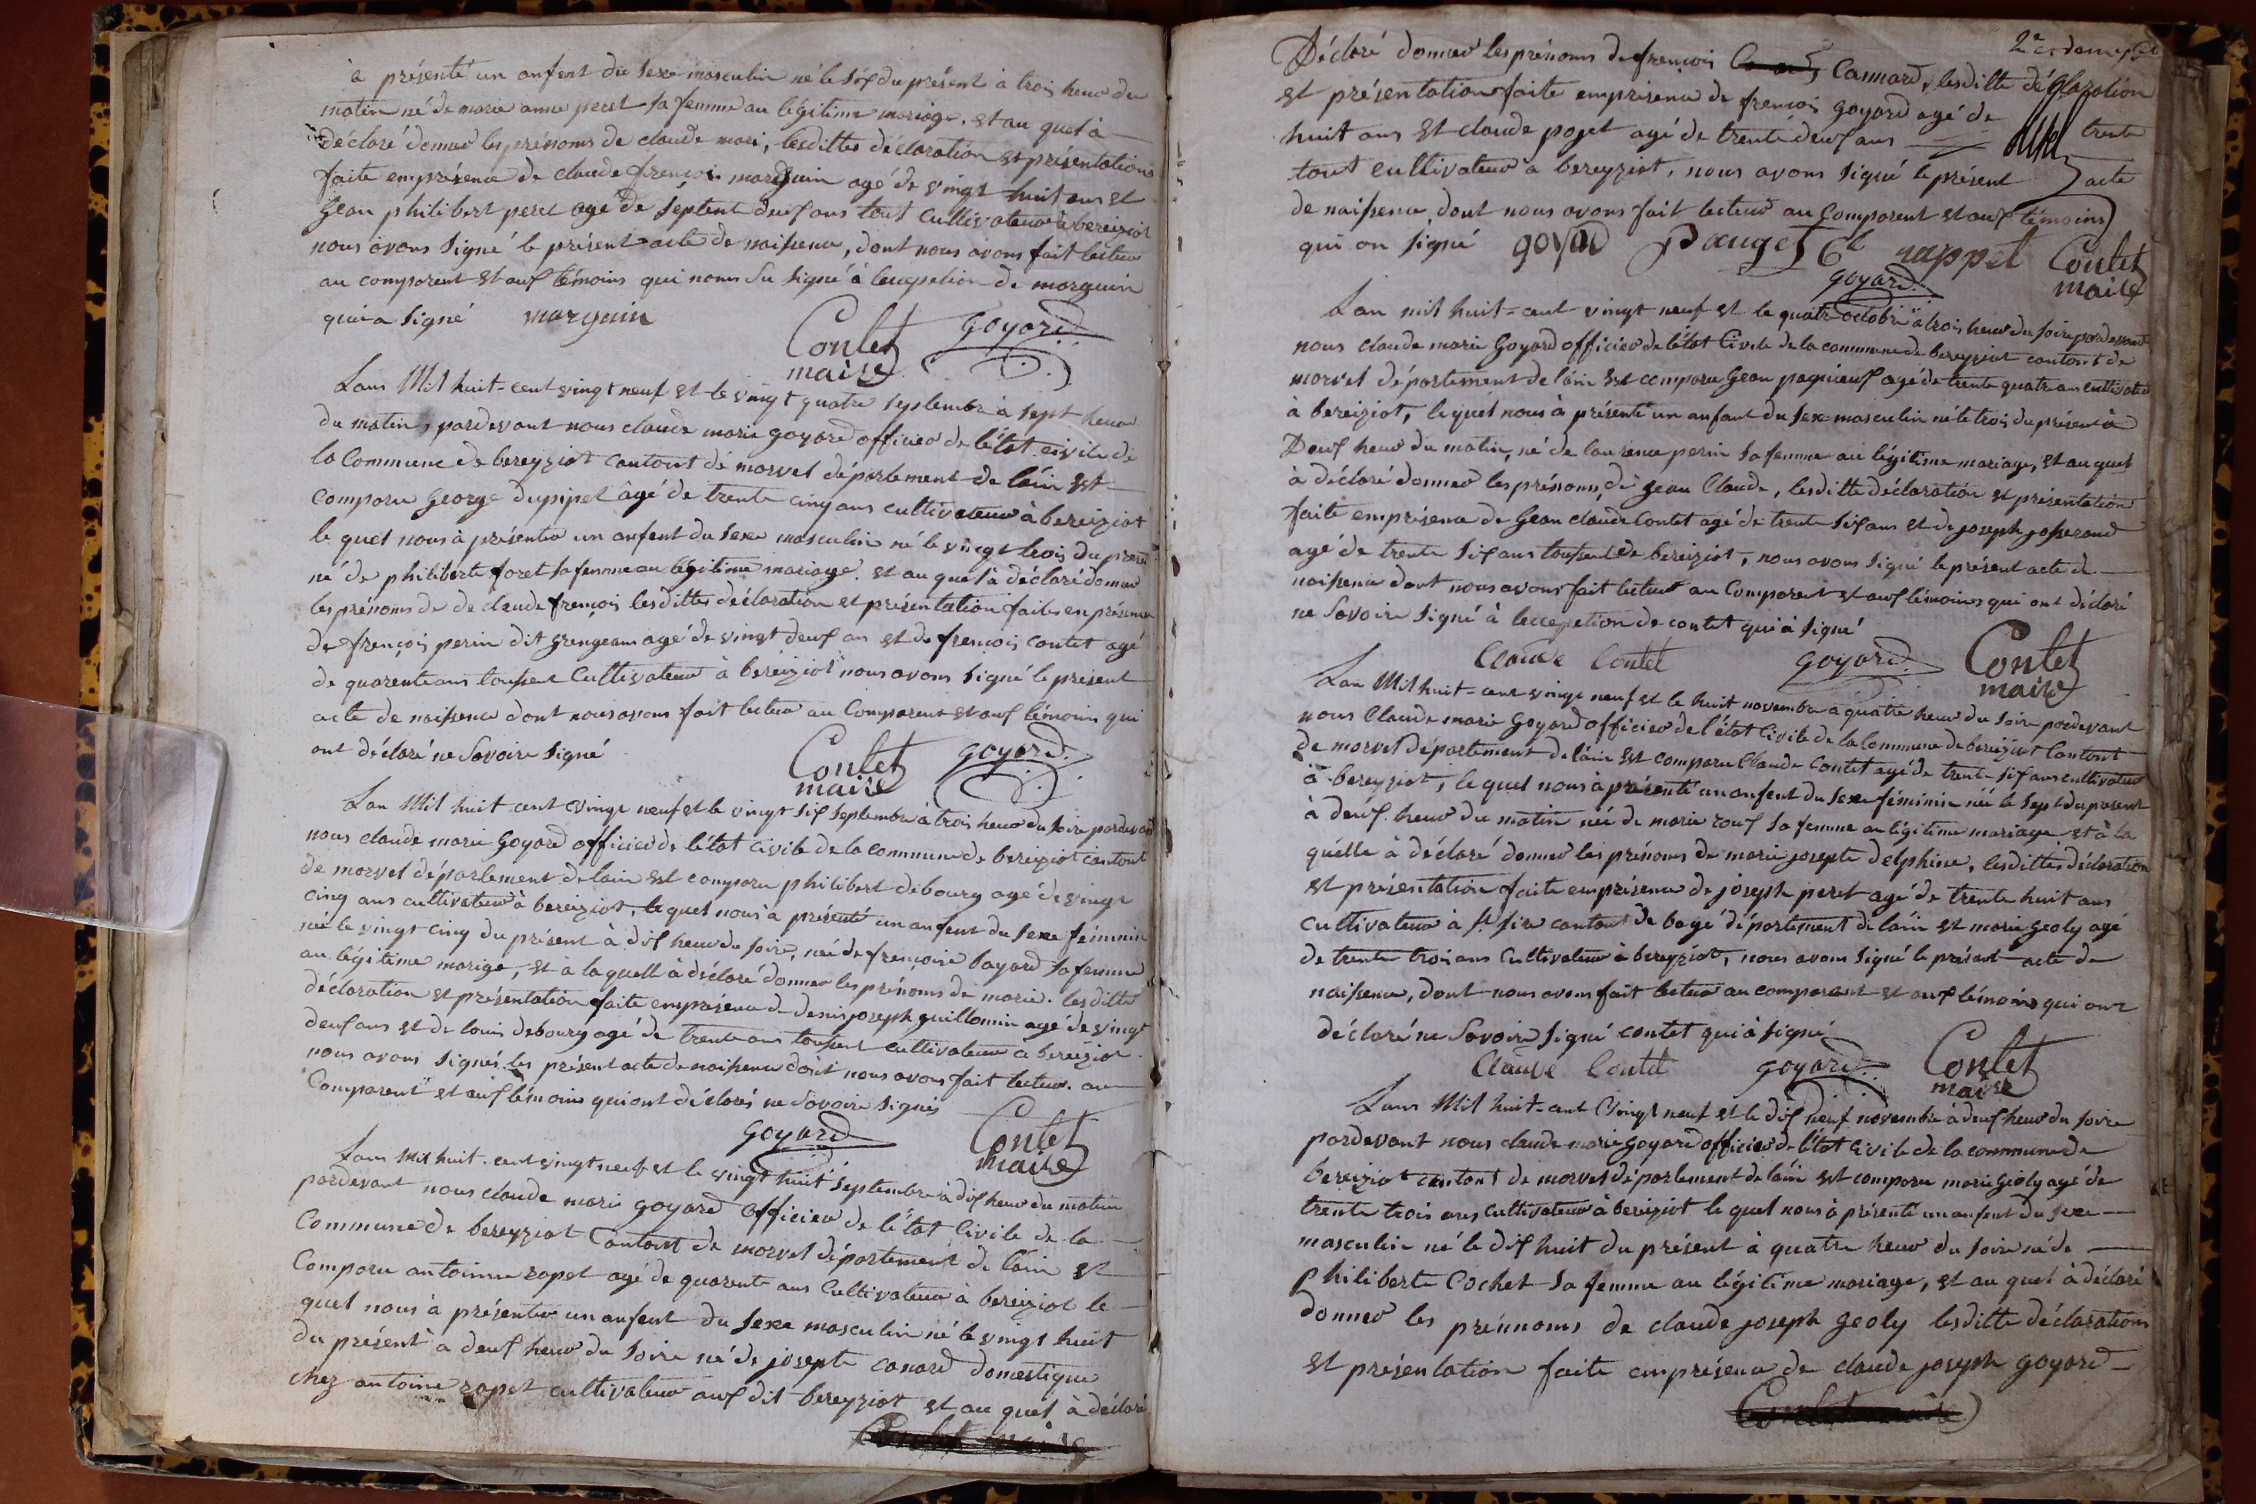 à présenté un anfent du sexe masculin né le six du présent à trois heur du
matin né de marie anne peret sa femme au légitime mariage. et au quel à
déclaré donner les prénoms de claude mari, lesdittes déclaration et présentations
faite emprésence de claude françois marguin agé de vingt huit ans et
gean philibert peret agé de septent deux ans tout cultivateur à bereiziot
nous avons signé le présent acte de naissence, dont nous avons fait lecteur
au comparent et aux témoins qui nons su signé à lecepetion de marguin
qui a signé marguin
Contet
maire
goyard
Lans Mil huit-cent vingt neuf et le vingt quatre septembre à sept heur
du matin, pardevant nous claude marie goyard officier de l'état civile de
la Commune de bereyziat cantont de marvel département de l'ain est
comparu george dupipet âgé de trente cinq ans cultivateur à bereiziot
le quel nous à présenter un anfent du sexe masculin né le vingt trois du présent
né de philiberte foret sa femme au légitime mariage. et au quel à déclaré donner
les prénoms de de claude françois lesdittes déclaration et présentation faites en présence
de françois perin dit grengeam agé de vingt deux ans et de françois contet agé
de quarente ans toussent Cultivateur à bereiziot nous avons signé le présent
acte de naissence dont nous avons fait lecteur au Comparent et aux témoins qui
ont déclaré ne savoire signé
Contet
maire
goyard
Lan Mil huit cent vingt neuf et le vingt six septembre à trois heur du soire pardevant
nous claude marie goyard officier de l'état civile de la commune de bereiziot cantont
de marvel département de lain est comparu philibert debourg agé de vingt
cinq ans cultivateur à bereiziot, le quel nous à présenté un anfent du sexe féminin
née le vingt cinq du présent à dix heur du soire, née de françoise bayard sa femme
au légitime marige, et à laquell à déclaré donner les prénoms de marie. lesditte
déclaration et présentation faite emprésence de denis joseph guillomin agé de vingt
deux ans et de louis debourg agé de trente ans toussent cultivateur a bereiziot
nous avons signés les présent acte de naissence dont nous avons fait lecteur. au
Comparent et aux témoins qui ont déclarés ne savoire signés
goyard
Contet
maire
Lans mil huit-cent vingt neuf et le vingt huit septembre à dix heur du matin
pardevant nous claude mari goyard officier de l'état Civile de la
Commune de bereyziat Cantont de marvel département de l'ain et
Comparu antoinne rapet agé de quarente ans Cultivateur à bereiziot le
quel nous à présenter un anfent du sexe masculin né le vingt huit
du présent à deux heur du soire né de josepte canard domestique
chez antoine rapet cultivateur aux dit bereyziat et au quel à déclaré
Contet maire
2e et dernier
Déclaré donner les prénoms de françois Canard, lesditte déclaration
et présentation faite emprésence de françois goyard agé de trente
huit ans et claude poget agé de trente deux ans
tout cultivateur à bereyziat, nous avons signé le présent acte
de naissence, dont nous avons fait lecteur au Comparent et aux témoins
qui on signé goyard Pauget Cl rappet Contet
maire
goyard
Lan mil huit-cent vingt neuf et le quatre octobre à trois heur du soire pardevant
nous claude marie goyard officier de l'état Civile de la commune de bereyziat cantont de
marvel département de l'ain est comparu gean paquieux agé de trente quatre ans cultivateur
à bereiziot, le quel nous à présenté un anfant du sexe masculin né le trois du présent à
Deux heur du matin, né de laurence perin sa femme au légitime mariage, et au quel
à déclaré donner les prénoms, de gean Claude, lesditte déclaration et présentation
faite emprésence de gean claude contet agé de trente six ans et de joseph josserand
agé de trente six ans toussent de bereiziot, nous avons signé le présent acte de
naissence dont nous avons fait lecteur au Comparent et aux témoins qui ont déclaré
ne savoire signé à leccepetion de contet qui à signé
Claude Contet
goyard
Contet
maire
Lan Mil huit-cent vingt neuf et le huit novembre à quatre heur du soire pardevant
nous Claude marie goyard officier de l'état Civile de la Commune de bereiziot Cantont
de marvel département de lain est comparu Claude Contet agé de trente six ans cultivateur
à bereyziot, le quel nous à présenté un anfent du sexe féminin née le sept du présent
à deux heur du matin née de marie roux sa femme au légitime mariage et à la
quelle à déclaré donner les prénoms de marie josepte delphine, lesdittes déclaration
et présentation faite emprésence de joseph peret agé de trente huit ans
cultivateur à st sire cantont de bagé département de l'ain et marie geoly agé
de trente trois ans Cultivateur à bereyziot, nous avons signé le présent acte de
naissence, dont nous avons fait lecteur au comparent et aux témoins qui ont
déclaré ne savoire signé contet qui à signé
Claude Contet
goyard
Contet
maire
Lans Mil huit-cent Vingt neuf et le dix neuf novembre à deux heur du soire
pardevant nous claude marie goyard officier de l'état Civile de la commune de
bereiziot cantont de marvel département de l'ain est comparu marie gioly agé de
trente trois ans cultivateur à bereiziot le quel nous à présenté un anfent du sexe
masculin né le dix huit du présent à quatre heur du soire né de
Philiberte Cochet sa femme au légitime mariage, et au quel à déclaré
donner les prénnoms de claude joseph geoly lesditte déclarations
et présentation faite emprésence de claude joseph goyard
Contet maire